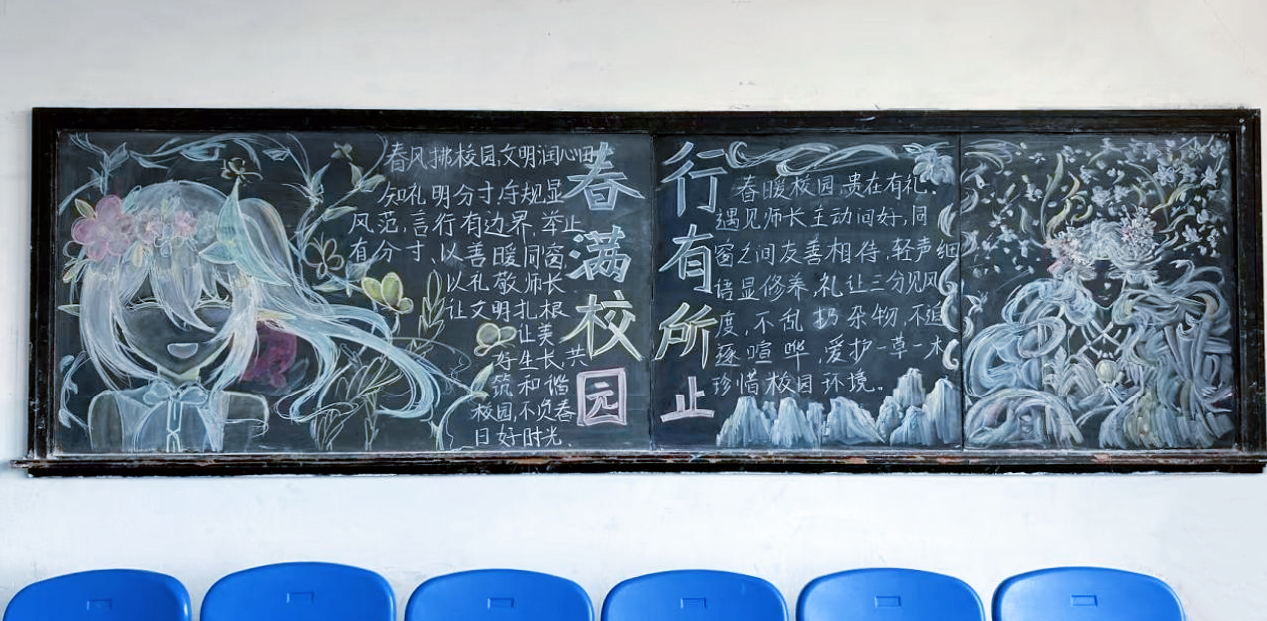 春风拂校园,文明润心田
知礼明分寸,守规显
风范,言行有边界,举止
有分寸、以善暖同窗
以礼敬师长
让文明扎根
让美
好生长,共
筑和谐
校园,不负春
日好时光.
春满校园
行有所止
春暖校园,贵在有礼.
遇见师长主动问好,同
窗之间友善相待,轻声细
语显修养,礼让三分见风
度,不乱扔杂物,不追
逐喧哗,爱护一草一木
珍惜校园环境。